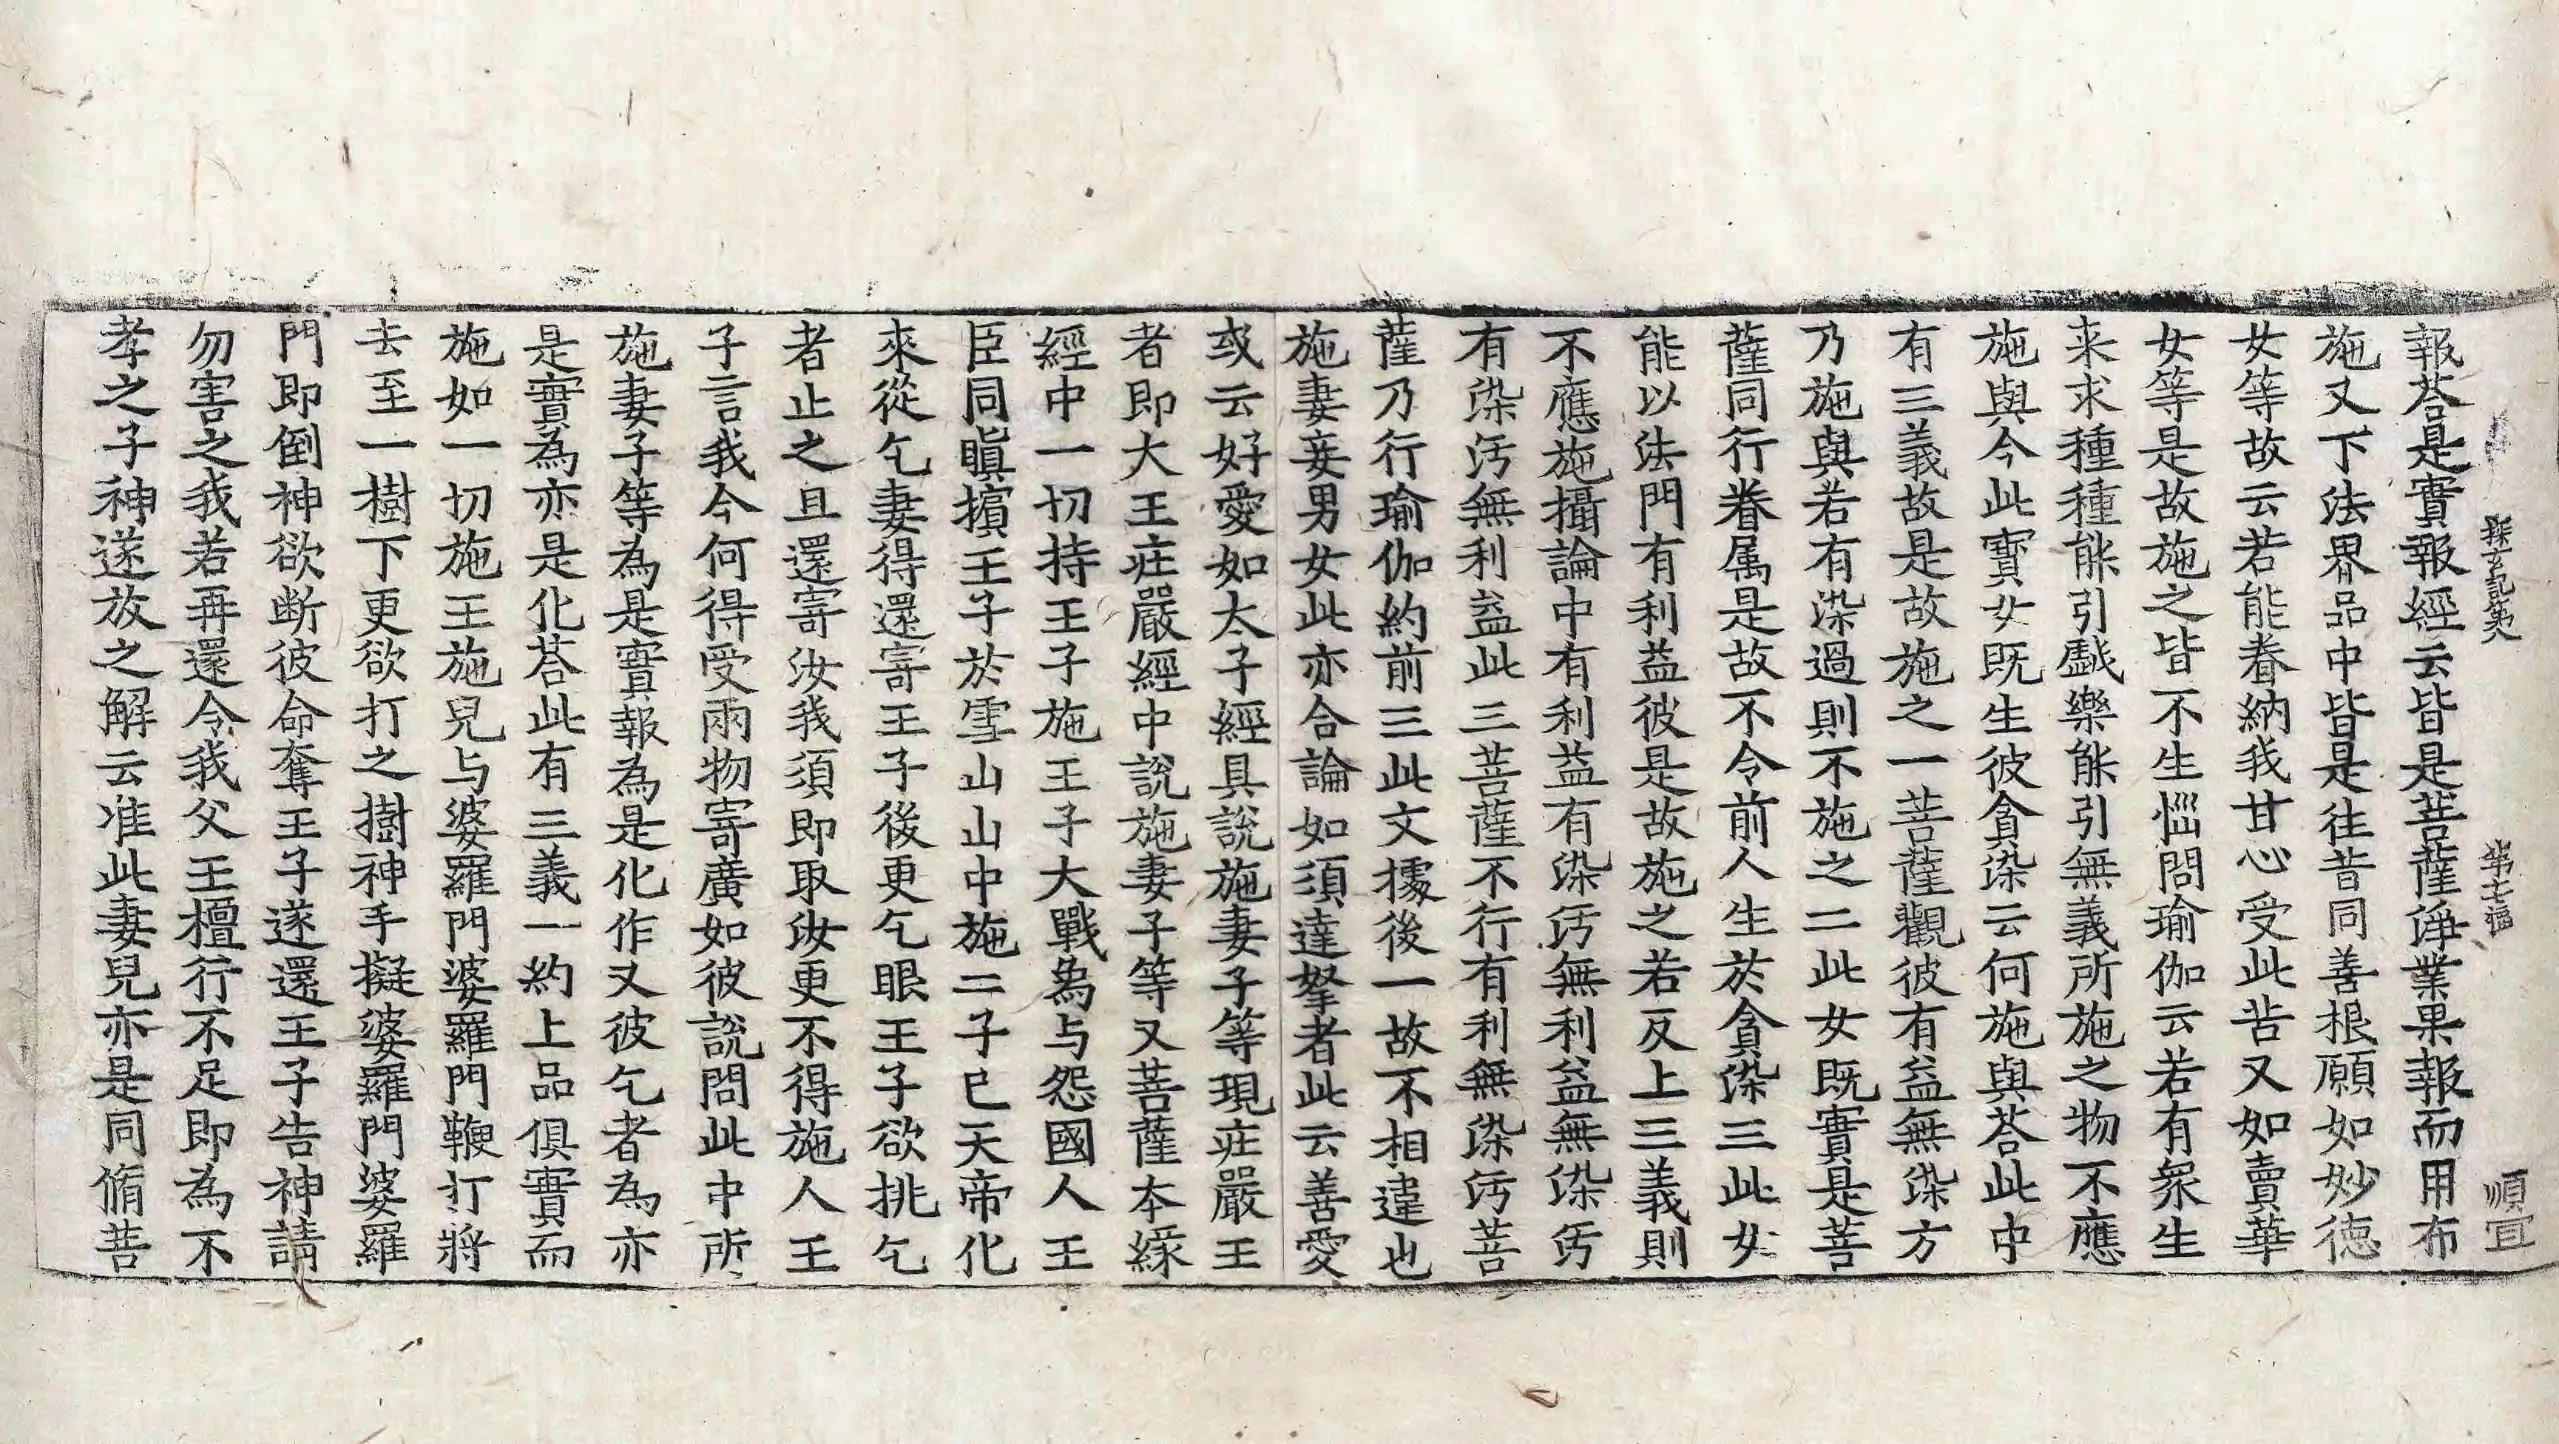 探玄記第八 第七 順宜
報荅是實報經云皆是菩薩淨業果報而用布
施又下法界品中皆是往昔同善根願如妙徳
女等故云若能眷納我甘心受此苦又如賣華
女等是故施之皆不生惱問瑜伽云若有衆生
来求種種能引戯樂能引無義所施之物不應
施與今此寶女既生彼貪染云何施與荅此中
有三義故是故施之一菩薩觀彼有益無染方
乃施與若有染過則不施之二此女既實是菩
薩同行眷属是故不令前人生於貪染三此女
能以法門有利益彼是故施之若反上三義則
不應施攝論中有利益有染汚無利益無染汚
有染汚無利益此三菩薩不行有利無染汚菩
薩乃行瑜伽約前三此文據後一故不相違也
施妻妾男女此亦合論如須達拏者此云善愛
或云好愛如太子經具說施妻子等現庄嚴王
者即大王庄嚴經中說施妻子等又菩薩本緣
經中一切持王子施王子大戰爲与怨國人王
臣同瞋擯王子於雪山山中施二子已天帝化
來從乞妻得還寄王子後更乞眼王子欲挑乞
者止之且還寄汝我須即取汝更不得施人王
子言我今何得受兩物寄廣如彼說問此中所
施妻子等為是實報為是化作又彼乞者為亦
是實為亦是化荅此有三義一約上品俱實而
施如一切施王施兒与婆羅門婆羅門鞭打將
去至一樹下更欲打之樹神手擬婆羅門婆羅
門即倒神欲断彼命奪王子遂還王子告神請
勿害之我若再還令我父王檀行不足即為不
孝之子神遂放之解云准此妻兒亦是同脩菩